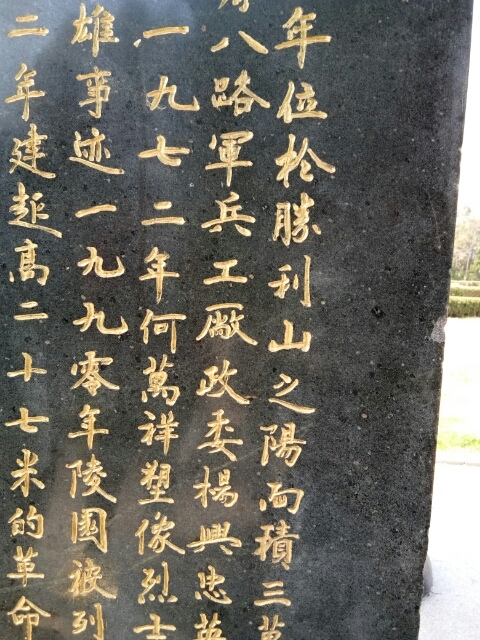 年位於勝利山之陽面積三萬
八路軍兵工廠政委楊興忠英
一九七二年何萬祥塑像烈士
雄事迹一九九零年陵園被列
二年建起高二十七米的革命